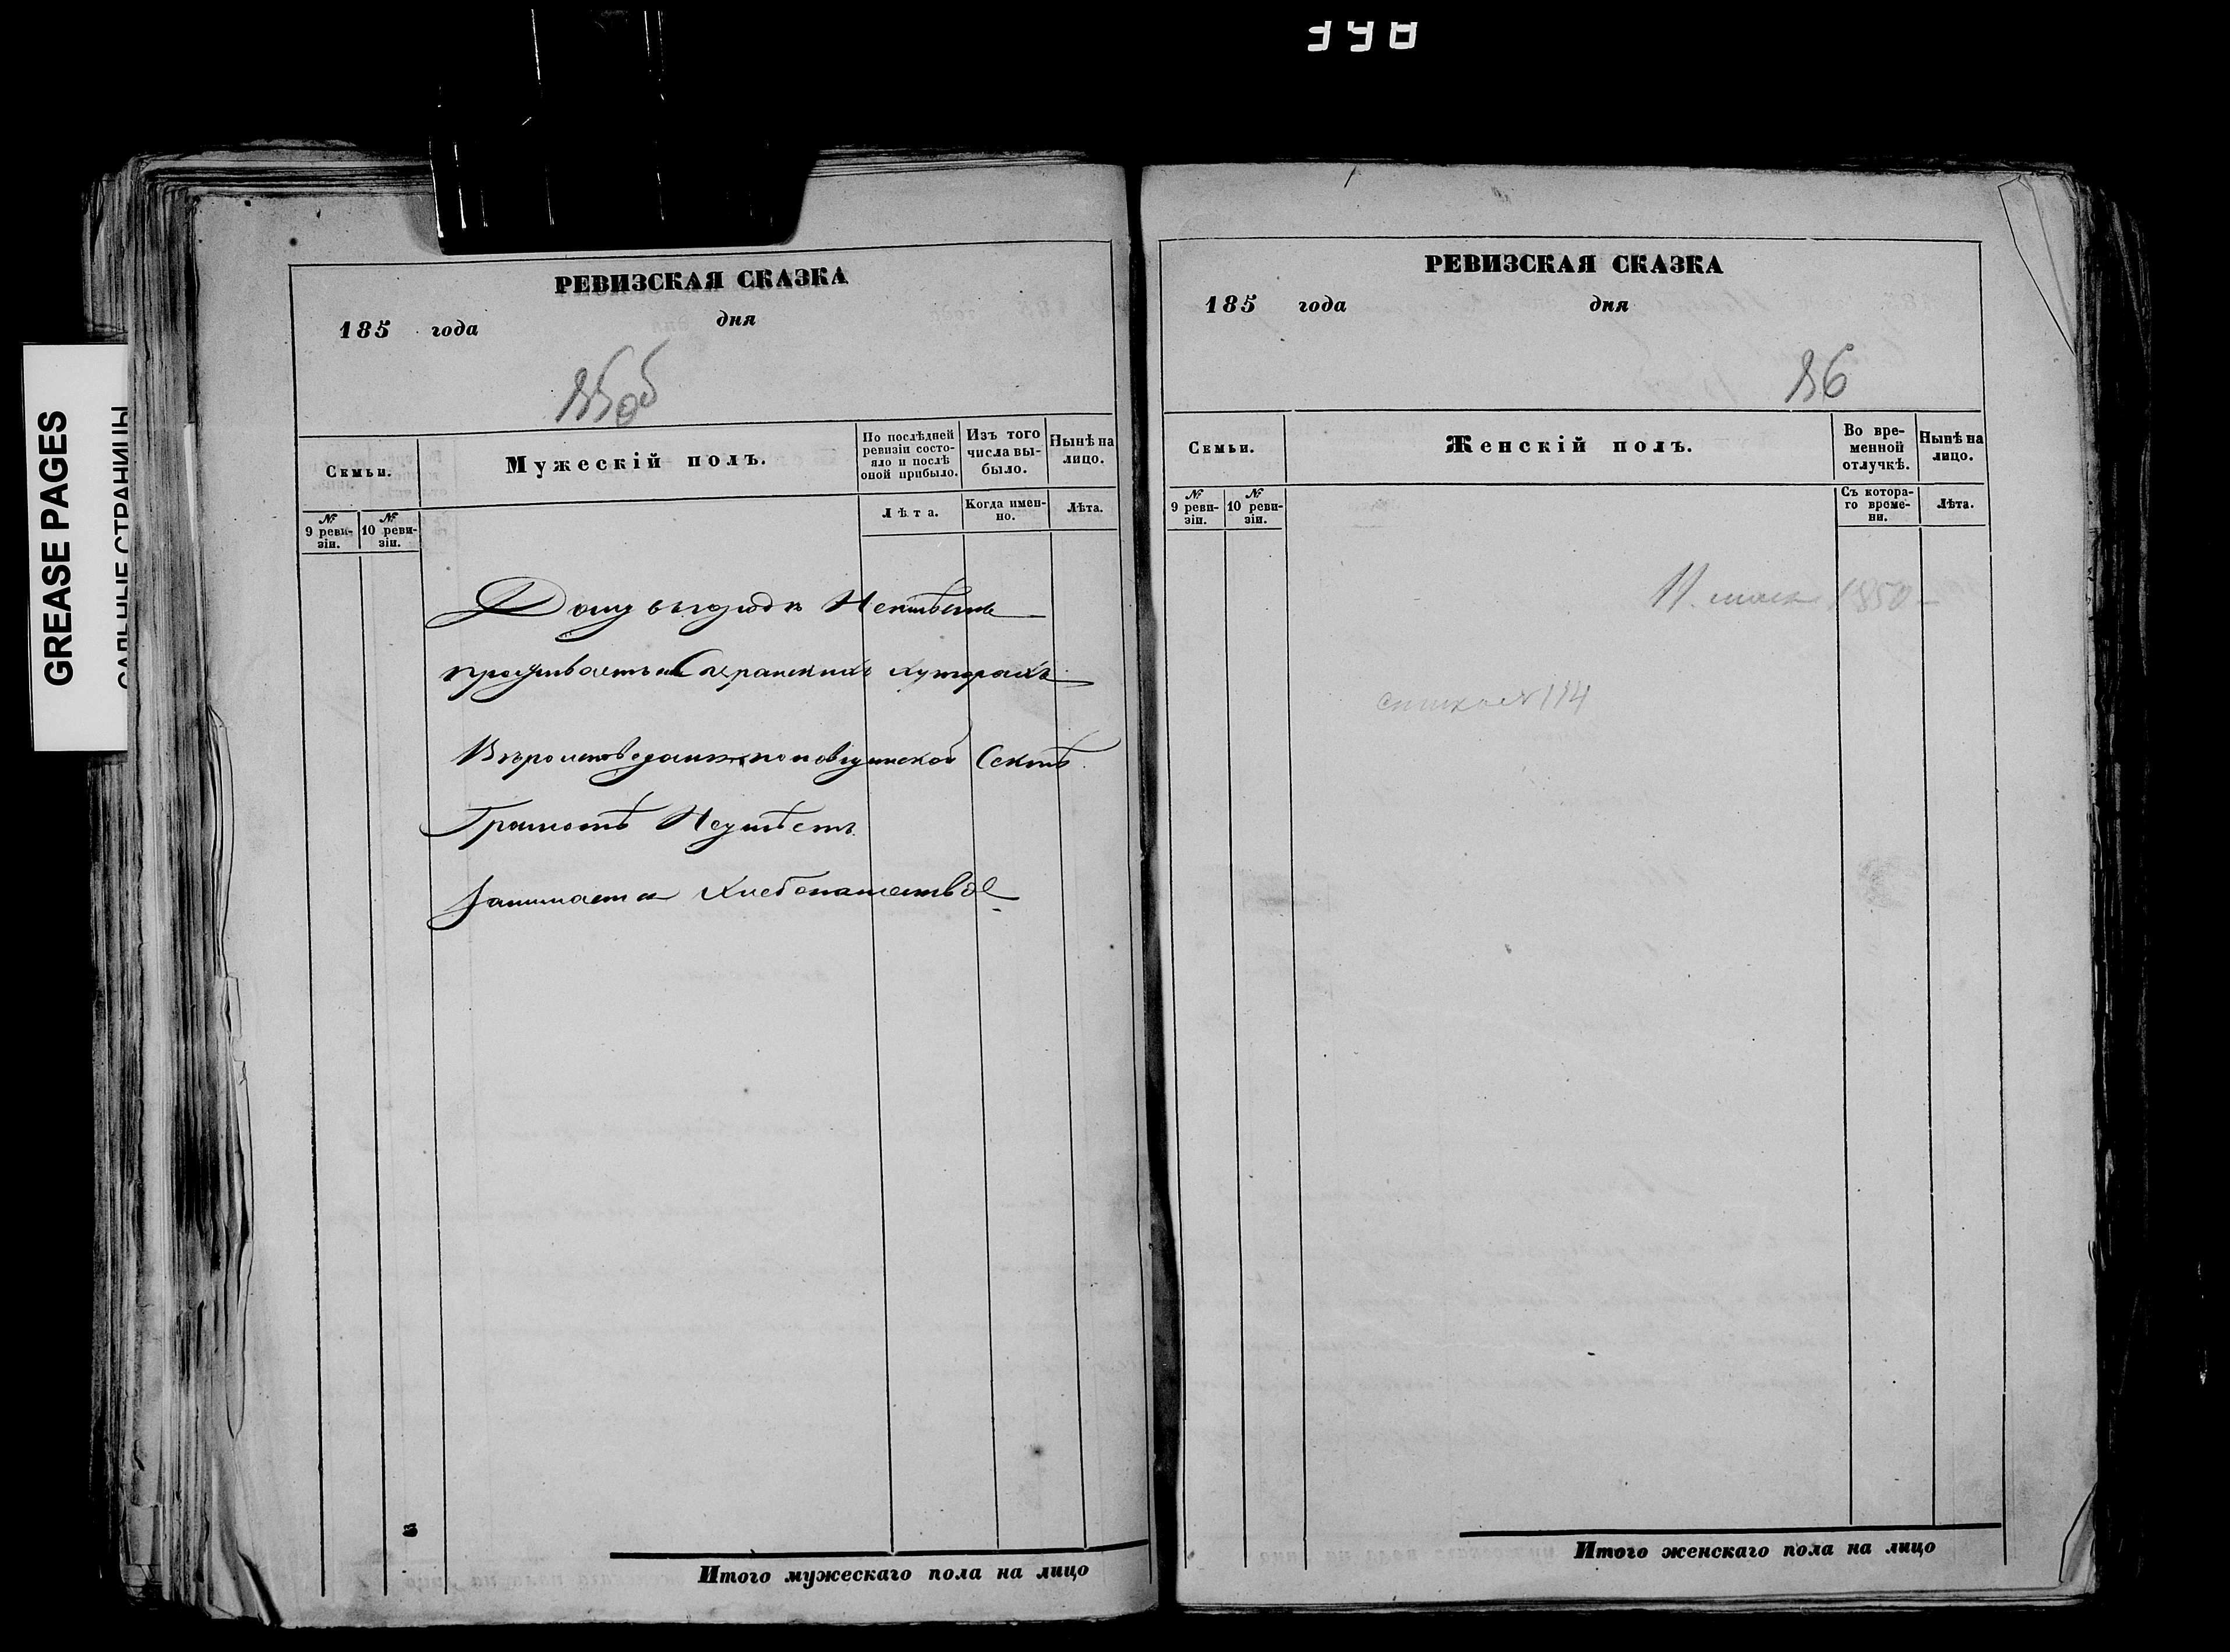 GREASE PAGES
САЛЬНЫЕ СТРАНИЦЫ
РЕВИЗСКАЯ СКАЗКА
185 года дня
85об
Семьи.
Мужескій полъ.
По послѣдней ревизіи состояло и послѣ оной прибыло.
Изъ того числа выбыло.
Нынѣ на лицо.
№ 9 ревизіи.
№ 10 ревизіи.
Лѣта.
Когда именно.
Лѣта.
Дому въ городѣ Неимѣетъ
проживаетъ на хуторахъ
Сектѣ
Грамотѣ Неумѣетъ
Занимается Хлебопашествомъ
Итого мужескаго пола на лицо
РЕВИЗСКАЯ СКАЗКА
185 года дня
86
Семьи.
Женскій полъ.
Во временной отлучкѣ.
Нынѣ на лицо.
№ 9 ревизіи.
№ 10 ревизіи.
Съ котораго времени.
Лѣта.
1850
114
Итого женскаго пола на лицо